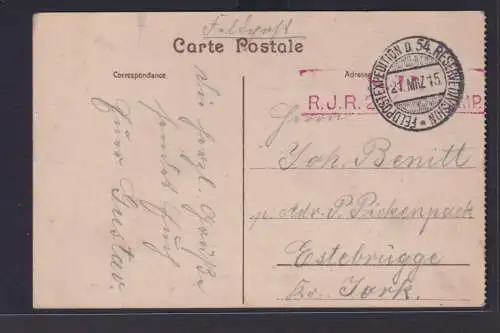 Feldpost
Carte Postale
Correspondance
Adresse
FELDPOSTEXPEDITION D. 54. RESERVEDIVISION
21. MRZ 15.
R.J.R. 2
MP.
Viel herzl. Grüße
sendet Euch
Euer Gustav.
Herrn
Joh. Benitt
p. Adr. P. Päckenpack
Estebrügge
Kr. Jork.